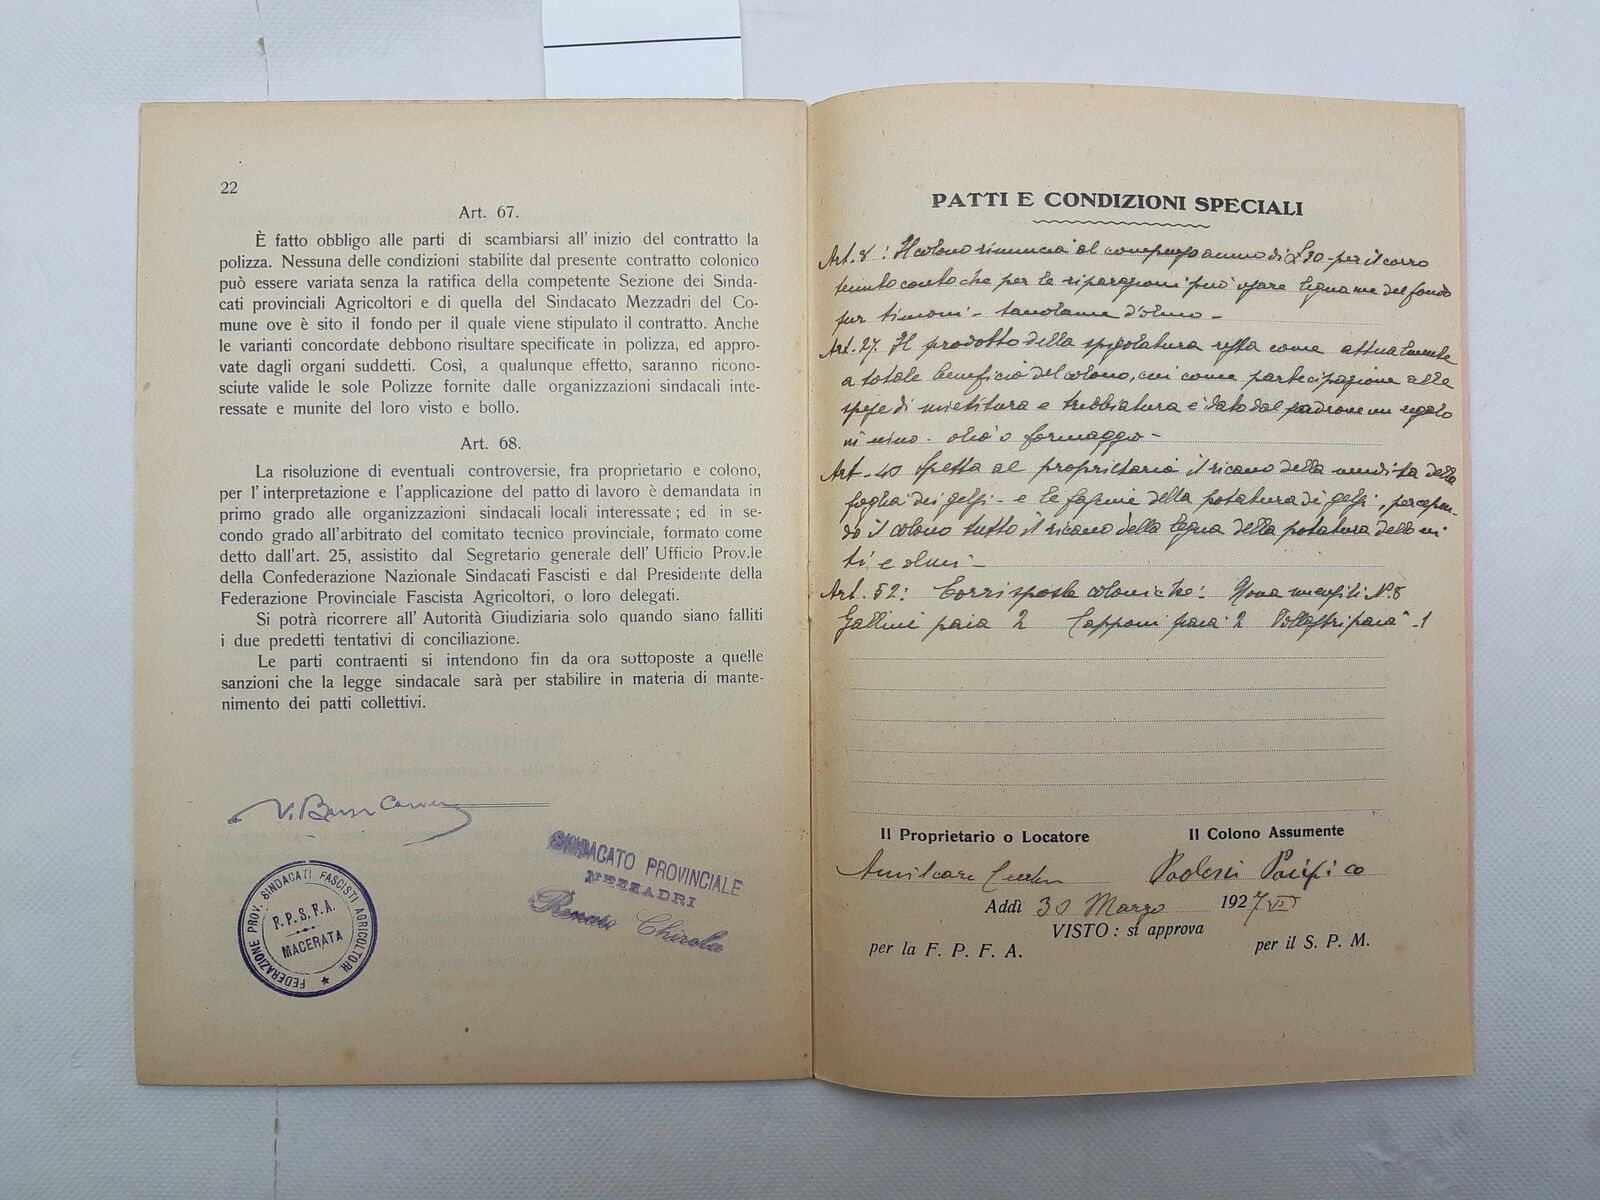 22
Art. 67.
È fatto obbligo alle parti di scambiarsi all' inizio del contratto la
polizza. Nessuna delle condizioni stabilite dal presente contratto colonico
può essere variata senza la ratifica della competente Sezione dei Sinda-
cati provinciali Agricoltori e di quella del Sindacato Mezzadri del Co-
mune ove è sito il fondo per il quale viene stipulato il contratto. Anche
le varianti concordate debbono risultare specificate in polizza, ed appro-
vate dagli organi suddetti. Così, a qualunque effetto, saranno ricono-
sciute valide le sole Polizze fornite dalle organizzazioni sindacali inte-
ressate e munite del loro visto e bollo.
Art. 68.
La risoluzione di eventuali controversie, fra proprietario e colono,
per l' interpretazione e l'applicazione del patto di lavoro è demandata in
primo grado alle organizzazioni sindacali locali interessate; ed in se-
condo grado all'arbitrato del comitato tecnico provinciale, formato come
detto dall'art. 25, assistito dal Segretario generale dell' Ufficio Prov.le
della Confederazione Nazionale Sindacati Fascisti e dal Presidente della
Federazione Provinciale Fascista Agricoltori, o loro delegati.
Si potrà ricorrere all' Autorità Giudiziaria solo quando siano falliti
i due predetti tentativi di conciliazione.
Le parti contraenti si intendono fin da ora sottoposte a quelle
sanzioni che la legge sindacale sarà per stabilire in materia di mante-
nimento dei patti collettivi.
FEDERAZIONE PROV. SINDACATI FASCISTI AGRICOLTORI
F. P. S. F. A.
MACERATA
SINDACATO PROVINCIALE
MEZZADRI
Renato Chirola
PATTI E CONDIZIONI SPECIALI
Art. 8: Il colono rinuncia al compenso annuo di £ 30 - per il carro
tenuto conto che per le riparazioni può usare legname del fondo
per timoni - tavolame d'olmo -
Art. 27. Il prodotto della spigolatura resta come attualmente
a totale beneficio del colono, cui come partecipazione alle
spese di mietitura e trebbiatura è dato dal padrone un regalo
di vino - olio o formaggio -
Art. 40 Spetta al proprietario il ricavo della vendita della
foglia dei gelsi - e le fascine della potatura di gelsi, percepen-
do il colono tutto il ricavo della legna della potatura delle vi
ti e olmi -
Art. 52: Corrisposte coloniche: Uova mensili N. 8
Gallini paia 2 Capponi paia 2 Pollastri paia 1
Il Proprietario o Locatore
Il Colono Assumente
Amilcare
Pacifico
Addì 30 Marzo 1927 VI
VISTO: si approva
per la F. P. F. A.
per il S. P. M.